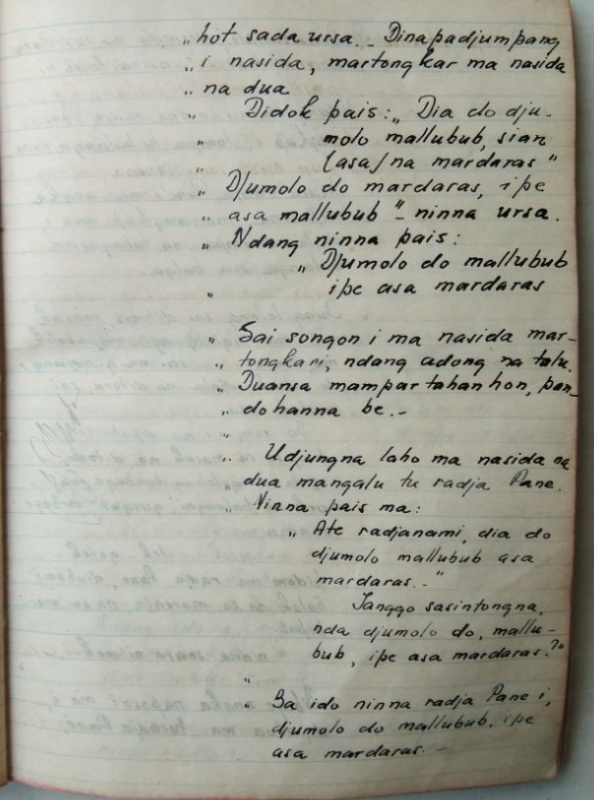 „ hot sada ursa. _ Dinapadjumpang
„ i nasida, martongkar ma nasida
„ na dua
Didok pais: „ Dia do dju-
„ molo mallubub, sian
„ (asa) na mardaras "
„ Djumolo do mardaras, ipe
„ asa mallubub " - ninna ursa.
„ Ndang ninna pais:
„ Djumolo do mallubub
„ ipe asa mardaras
„ Sai songon i ma nasida mar-
„ tongkari, ndang adong na talu.
„ Duansa mampartahanhon, pan-
„ dohanna be. -
„
„ Udjungna laho ma nasida na
„ dua mangalu tu radja Pane.
„ Niana pais ma:
„ Ate radjanami, dia do
djumolo mallubub asa
mardaras. - "
Tanggo sasintongna,
nda djumolo do, mallu-
bub, ipe asa mardaras. ?
„
„ Ba ido ninna radja Pane i,
djumolo do mallubub, ipe
asa mardaras. -